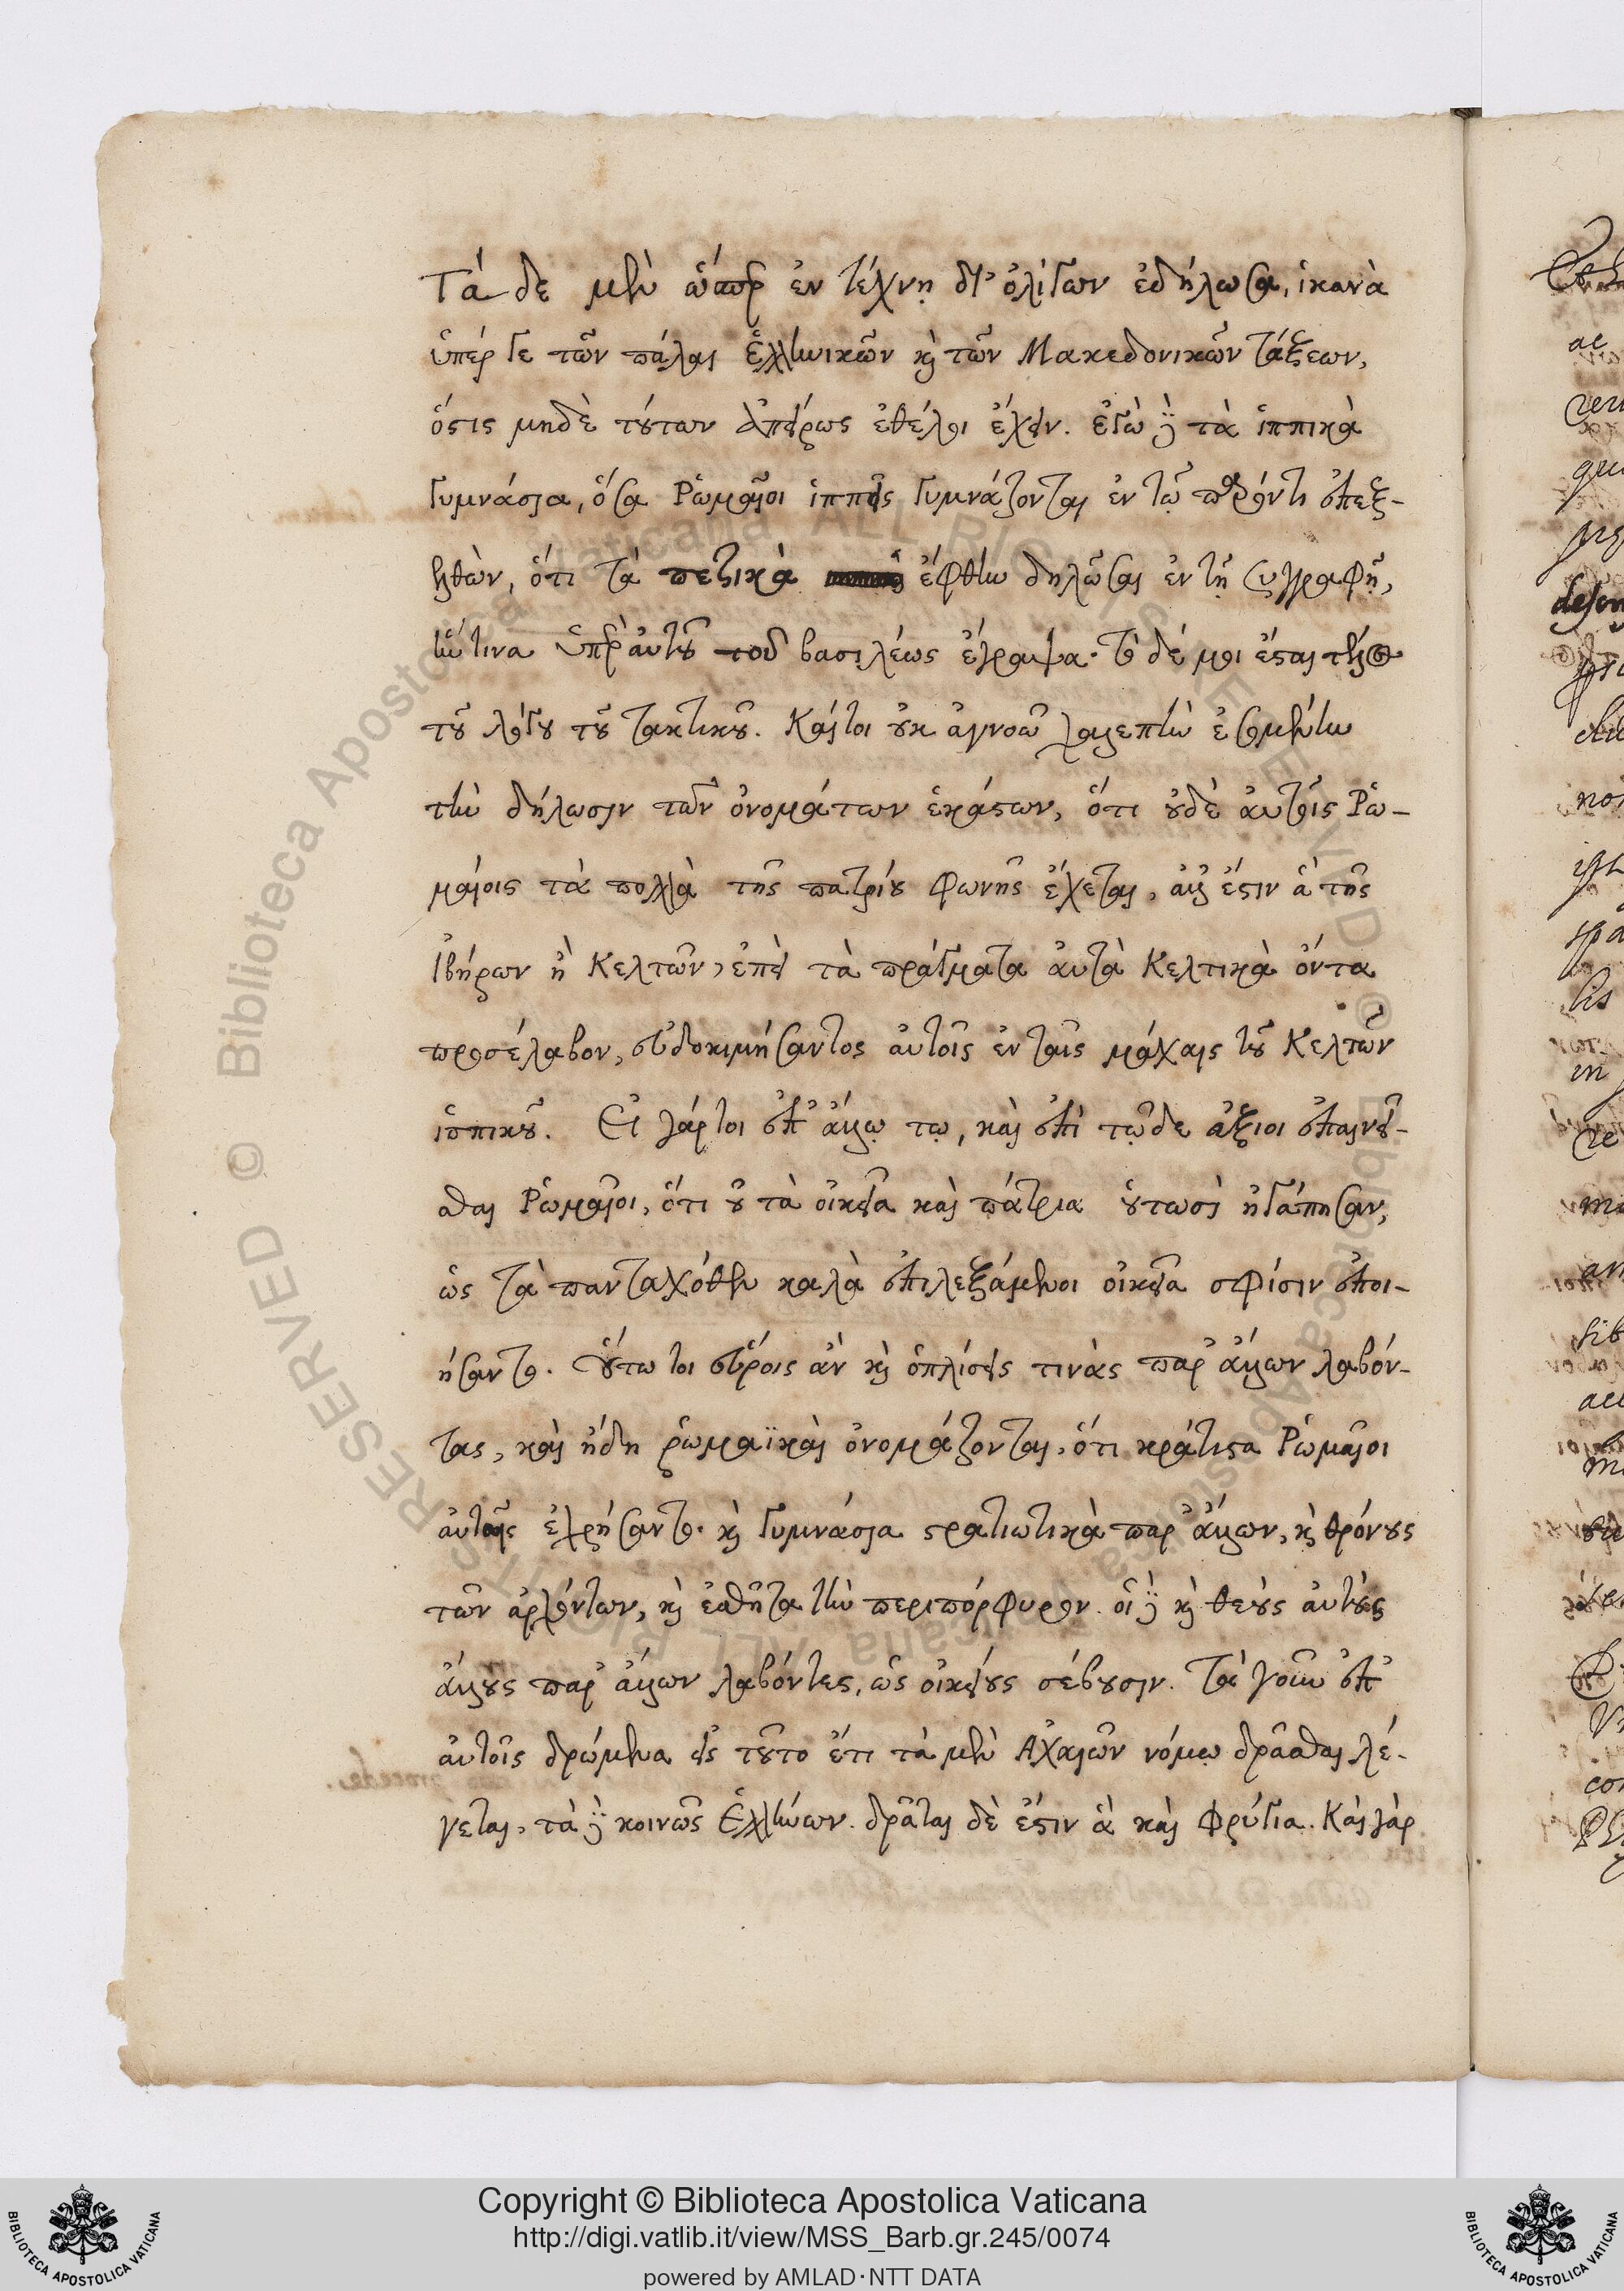 Τάδε μὲν ὥσπερ ἐν τέχνῃ δι' ὀλίγων ἐδήλωσα, ἱκανὰ
ὑπέρ γε τῶν πάλαι Ἑλληνικῶν κὶ τῶν Μακεδονικῶν τάξεων,
ὅστις μηδὲ τούτων ἀπείρως ἐθέλοι ἔχειν. ἐγὼ δὲ τὰ ἱππικὰ
γυμνάσια, ὅσα Ῥωμαῖοι ἱππεῖς γυμνάζονται ἐν τῷ παρόντι ἐπεξ-
ελθὼν, ὅτι τὰ πεζικὰ ἔφθην δηλῶσαι ἐν τῇ συγγραφῇ,
ἥντινα ὑπὲρ αὐτοῦ τοῦ βασιλέως ἔγραψα· τόδε μοι ἔσται τέλος
τοῦ λόγου τοῦ τακτικοῦ. Καίτοι οὐκ ἀγνοῶ χαλεπὴν ἐσομένην
τὴν δήλωσιν τῶν ὀνομάτων ἑκάστων, ὅτι οὐδὲ αὐτοῖς Ῥω-
μαίοις τὰ πολλὰ τῆς πατρίου φωνῆς ἔχεται, ἀλλ' ἔστιν ἃ τῆς
Ἰβήρων ἢ Κελτῶν, ἐπεὶ τὰ πράγματα αὐτὰ Κελτικὰ ὄντα
προσέλαβον, εὐδοκιμήσαντος αὐτοῖς ἐν ταῖς μάχαις τοῦ Κελτῶν
ἱππικοῦ. Εἰ γάρ τοι ἐπ' ἄλλῳ τῳ, καὶ ἐπὶ τῷδε ἄξιοι ἐπαινεῖ-
σθαι Ῥωμαῖοι, ὅτι οὐ τὰ οἰκεῖα καὶ πάτρια οὕτωσὶ ἠγάπησαν,
ὡς τὰ πανταχόθεν καλὰ ἐπιλεξάμενοι οἰκεῖα σφίσιν ἐποι-
ήσαντο. οὕτω τοι εὕροις ἂν κὶ ὁπλίσεις τινὰς παρ' ἄλλων λαβόν-
τας, καὶ ἤδη ῥωμαϊκαὶ ὀνομάζονται, ὅτι κράτιστα Ῥωμαῖοι
αὐταῖς ἐχρήσαντο· κὶ γυμνάσια στρατιωτικὰ παρ' ἄλλων, κὶ θρόνους
τῶν ἀρχόντων, κὶ ἐσθῆτα τὴν περιπόρφυρον. οἱ δὲ κὶ θεοὺς αὐτοὺς
ἄλλους παρ' ἄλλων λαβόντες, ὡς οἰκείους σέβουσιν. Τὰ γοῦν ἐπ'
αὐτοῖς δρώμενα εἰς τοῦτο ἔτι τὰ μὲν Ἀχαιῶν νόμῳ δρᾶσθαι λέ-
γεται, τὰ δὲ κοινῶς Ἑλλήνων. δρᾶται δὲ ἔστιν ἃ καὶ Φρύγια. Καὶ γὰρ
Copyright © Biblioteca Apostolica Vaticana
http://digi.vatlib.it/view/MSS_Barb.gr.245/0074
powered by AMLAD·NTT DATA